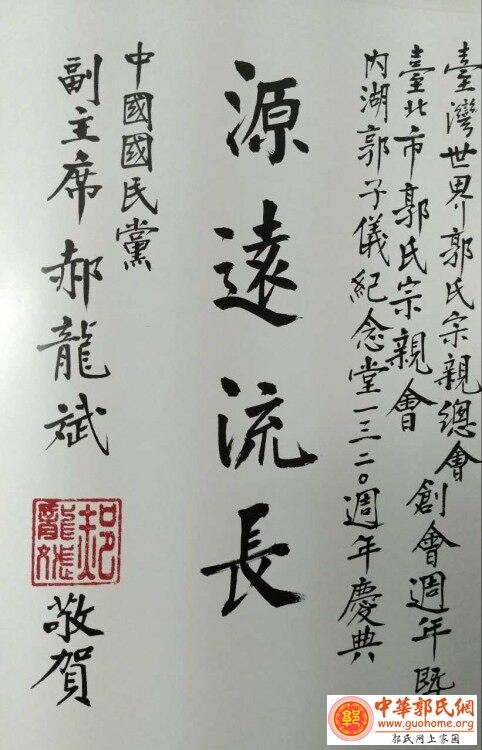 臺灣世界郭氏宗親總會
臺北市郭氏宗親會
創會週年暨
內湖郭子儀紀念堂一三二○週年慶典
源遠流長
中國國民黨
副主席郝龍斌
郝龍斌
敬賀
中華郭氏網
www.guohome.org
郭氏网上家园